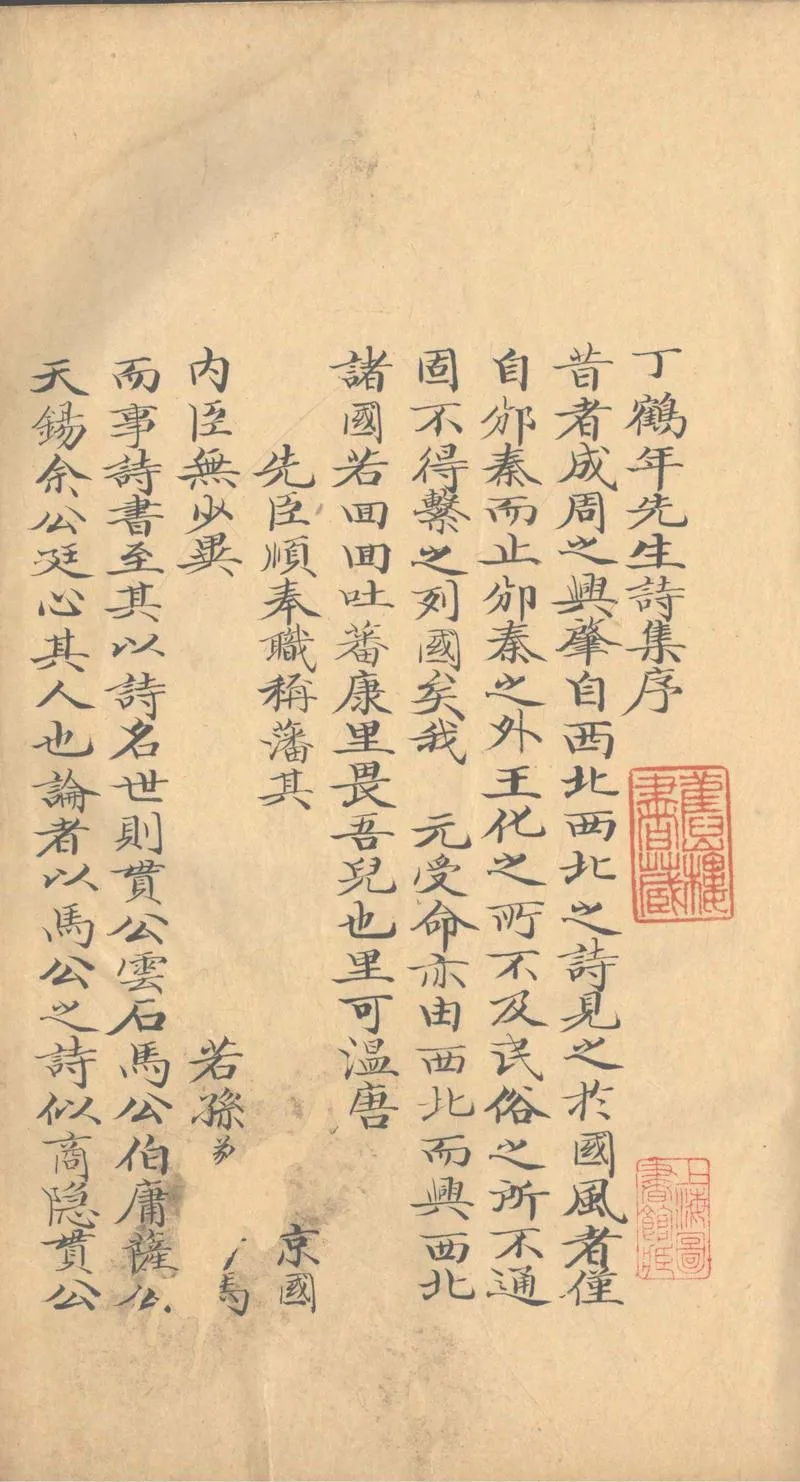 丁鶴年先生詩集序
昔者成周之興肇自西北西北之詩見之於國風者僅
自邠秦而止邠秦之外王化之所不及民俗之所不通
固不得繫之列國矣我 元受命亦由西北而興西北
諸國若回回吐蕃康里畏吾兒也里可温唐
先臣順奉職稱藩其 京國
内臣無少異 若孫 馬
而事詩書至其以詩名世則貫公雲石馬公伯庸薩公
天錫余公廷心其人也論者以馬公之詩似商隠貫公
樓書藏
上海圖書館藏